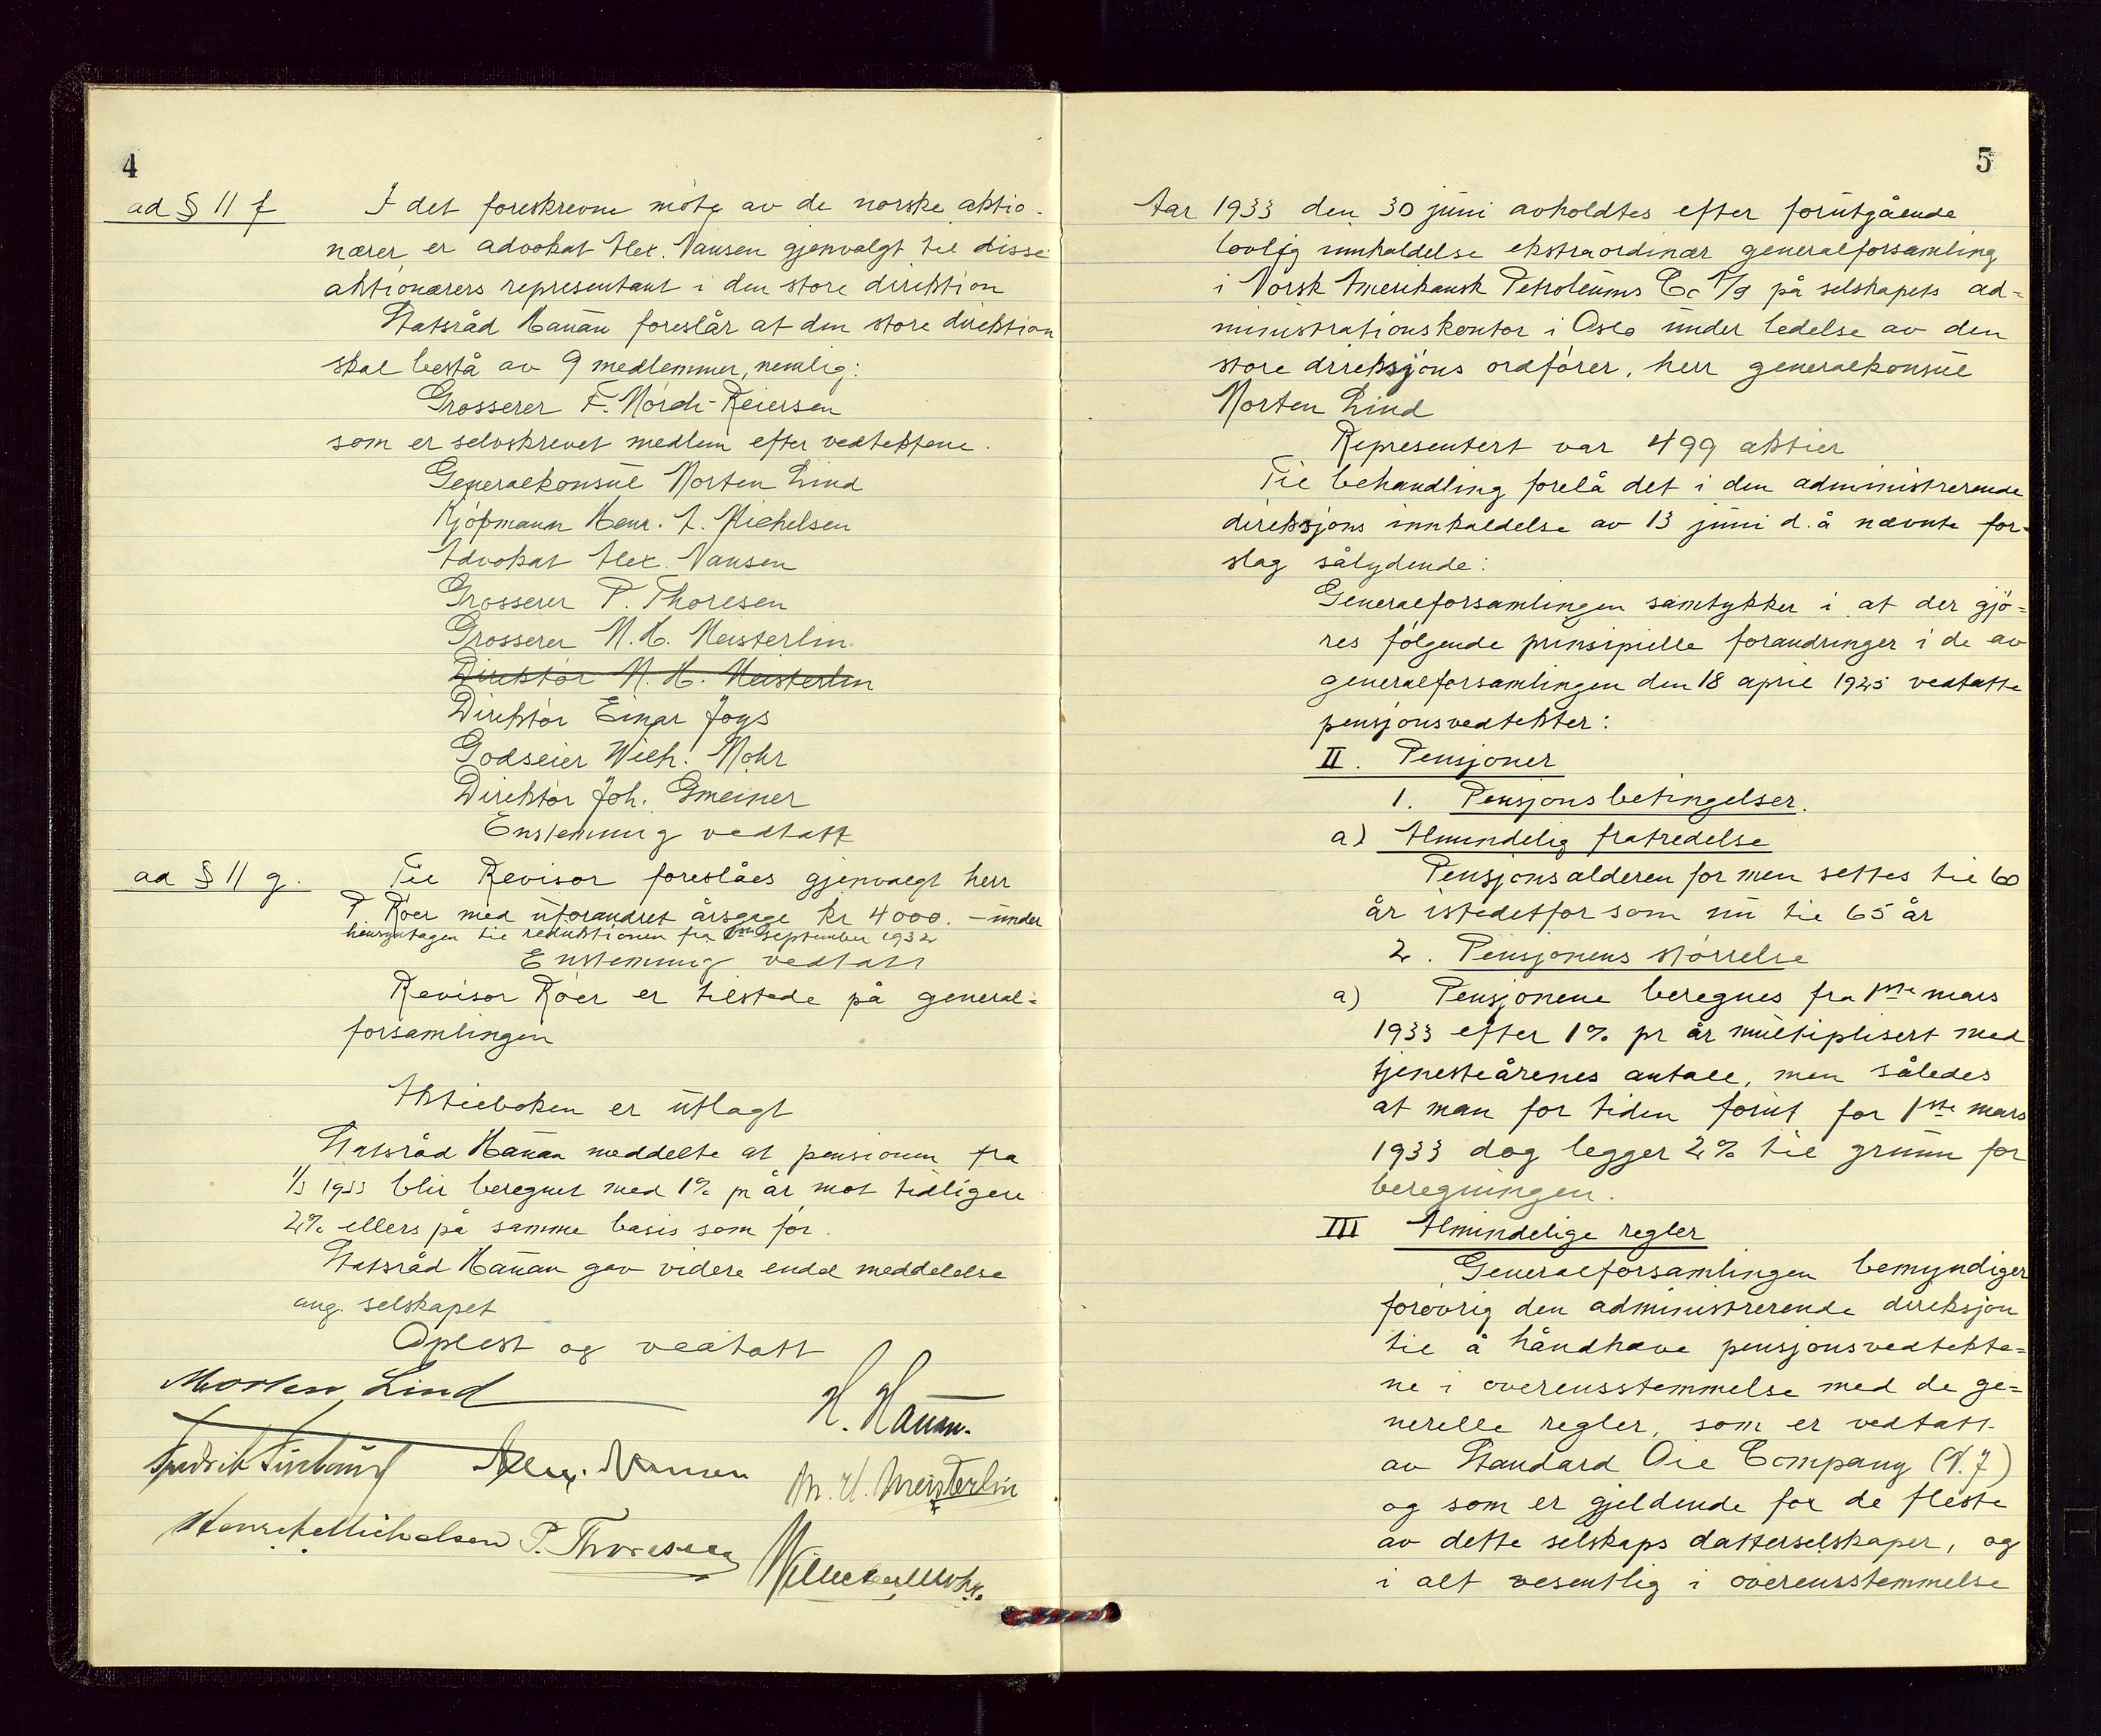 4
ad § 11 f I det foreskrevne møte av de norske aktio-
nærer er advokat Alex. Nansen gjenvalgt til disse
aktionærers representant i den store direktion
Statsråd Hauan foreslår at den store direktion
skal bestå av 9 medlemmer, nemlig:
Grosserer F. Mørch-Reiersen
som er selvskrevet medlem efter vedtektene.
Generalkonsul Morten Lind
Kjøpmann Henr. A. Michelsen
Advokat Alex. Nansen
Grosserer P. Thoresen
Grosserer M. H. Meisterlin
Direktør M. H. Meisterlin
Direktør Einar Joys
Godseier Wilh. Mohr
Direktør Joh. Gmeiner
Enstemmig vedtatt
ad § 11 g. Til Revisor foreslåes gjenvalgt herr
P. Røer med uforandret årsgage kr 4000. – under
hensyntagen til reduktionen fra 1ste September 1932
Enstemmig vedtatt
Revisor Røer er tilstede på general-
forsamlingen
Aktieboken er utlagt
Statsråd Hauan meddelte at pensionen fra
1/3 1933 blir beregnet med 1% pr år mot tidligere
2% ellers på samme basis som før.
Statsråd Hauan gav videre endel meddelelse
ang. selskapet
Oplest og vedtatt
Morten Lind
H. Hauan.
Alex. Nansen
M. H. Meisterlin
Henrik A Michelsen P. Thoresen
Wilhelm Mohr.
5
Aar 1933 den 30 juni avholdtes efter forutgående
lovlig innkaldelse ekstraordinær generalforsamling
i Norsk Amerikansk Petroleums Co A/S på selskapets ad-
ministrationskontor i Oslo under ledelse av den
store direksjons ordfører, herr generalkonsul
Morten Lind
Representert var 499 aktier
Til behandling forelå det i den administrerende
direksjons innkaldelse av 13 juni d. å nævnte for-
slag sålydende:
Generalforsamlingen samtykker i at der gjø-
res følgende prinsipielle forandringer i de av
generalforsamlingen den 18 april 1925 vedtatte
pensjonsvedtekter:
II. Pensjoner
1. Pensjonsbetingelser.
a) Almindelig fratredelse
Pensjonsalderen for men settes til 60
år istedetfor som nu til 65 år
2. Pensjonens størrelse
a) Pensjonene beregnes fra 1ste mars
1933 efter 1% pr år multiplisert med
tjenesteårenes antall, men således
at man for tiden forut for 1ste mars
1933 dog legger 2% til grunn for
beregningen.
III Almindelige regler
Generalforsamlingen bemyndiger
forøvrig den administrerende direksjon
til å håndhæve pensjonsvedtekte-
ne i overensstemmelse med de ge-
nerelle regler, som er vedtatt
av Standard Oil Company (N. J)
og som er gjeldende for de fleste
av dette selskaps datterselskaper, og
i alt vesentlig i overensstemmelse